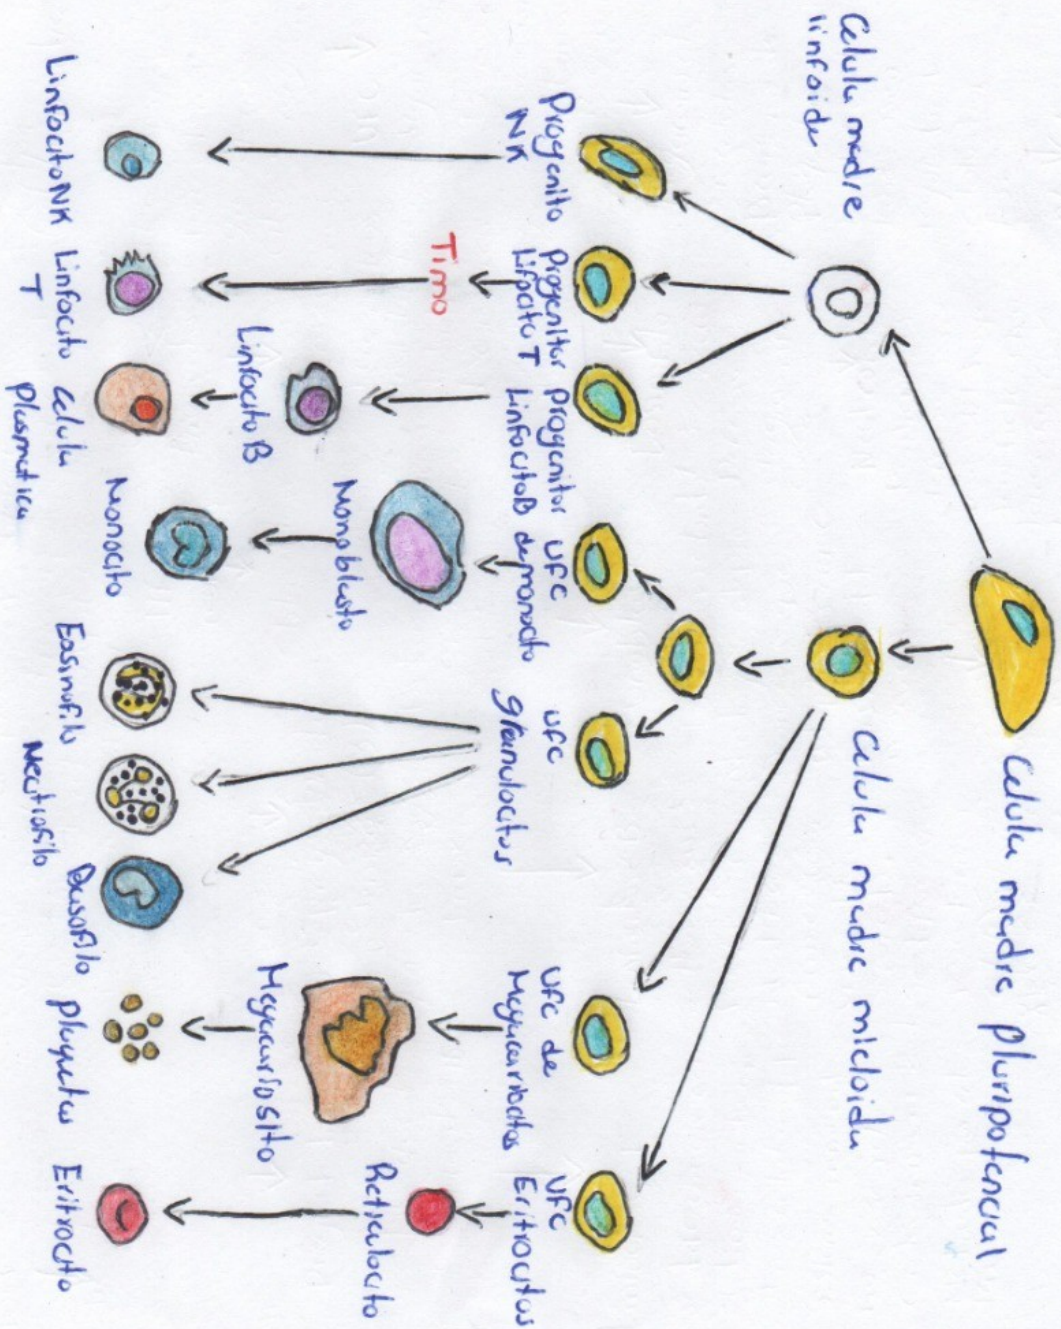 Celula madre pluripotencial
Celula madre
linfoide
Celula madre mieloide
Progenito
NK
Progenitor
Lifocito T
Progenitor
Linfocito B
UFC
de monocito
UFC
granulocitos
UFC de
Megacariocitos
UFC
Eritrocitos
Timo
Linfocito B
Monoblasto
Megacariosito
Reticulocito
Linfocito NK
Linfocito
T
Celula
Plasmatica
Monocito
Eosinofilo
Neutrofilo
Basofilo
plaquetas
Eritrocito